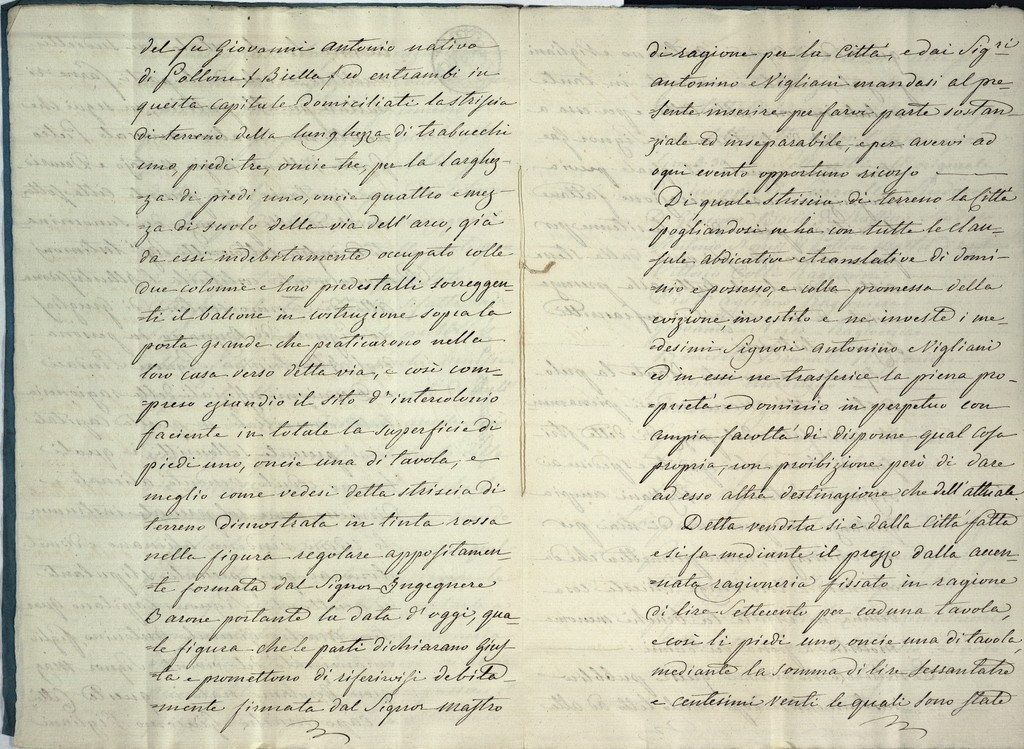 del fu Giovanni Antonio nativo
di Pollone (Biella) ed entrambi in
questa Capitale domiciliati la striscia
di terreno della lunghezza di trabucchi
uno, piedi tre, oncie tre, per la larghez-
=za di piedi uno, oncie quattro e mez-
=za di suolo della via dell'arco, già
da essi indebitamente occupato colle
due colonne e loro piedestalli sorreggen-
=ti il balcone in costruzione sopra la
porta grande che praticarono nella
loro casa verso detta via, e così com-
=preso eziandio il sito d'intercolonio
faciente in totale la superficie di
piedi uno, oncie una di tavola, e
meglio come vedesi detta striscia di
terreno dimostrata in tinta rossa
nella figura regolare appositamen-
=te formata dal Signor Ingegnere
Barone portante la data d'oggi, qua-
=le figura che le parti dichiarano Gius-
=ta e promettono di riferirvisi debita-
=mente firmata dal Signor Mastro
di ragione per la Città, e dai Sigri
Antonino e Vigliani mandasi al pre-
=sente inserire per farvi parte sostan-
=ziale ed inseparabile, e per avervi ad
ogni evento opportuno ricorso
Di quale striscia di terreno la Città
spogliandosi ne ha con tutte le clau-
=sule abdicative e translative di domi-
=nio e possesso, e colla promessa della
evizione, investito e ne investe i me-
=desimi Signori Antonino e Vigliani
ed in essi ne trasferice la piena pro-
=prietà e dominio in perpetuo con
ampia facoltà di disporne qual cosa
propria, con proibizione però di dare
ad esso altra destinazione che dell'attuale.
Detta vendita si è dalla Città fatta
e si fa mediante il prezzo dalla accen-
=nata ragioneria fissato in ragione
di lire Settecento per caduna tavola,
e così li piedi uno, oncie una di tavola,
mediante la somma di lire sessantatre
e centesimi venti le quali sono state